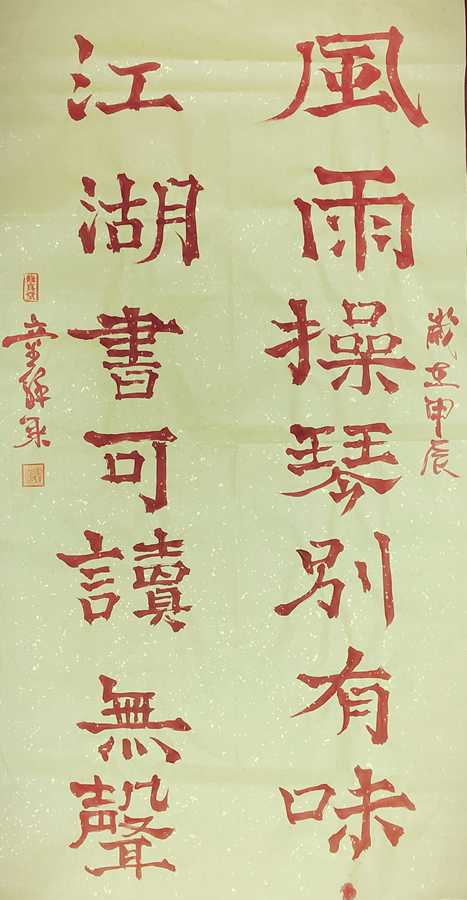 風雨操琴別有味
江湖書可讀無聲
歲在甲辰